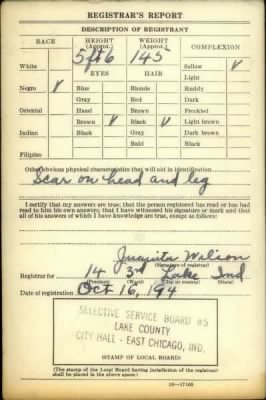 REGISTRAR'S REPORT
DESCRIPTION OF REGISTRANT
RACE HEIGHT (Approx.) WEIGHT (Approx.) COMPLEXION
5ft6 145
White Sallow ✓
EYES HAIR Light
Negro ✓ Blue Blonde Ruddy
Gray Red Dark
Oriental Hazel Brown Freckled
Brown ✓ Black ✓ Light brown
Indian Black Gray Dark brown
Bald Black
Filipino
Other obvious physical characteristics that will aid in identification
Scar on head and leg
I certify that my answers are true; that the person registered has read or has had
read to him his own answers; that I have witnessed his signature or mark and that
all of his answers of which I have knowledge are true, except as follows:
Juanita Wilson
(Signature of registrar)
Registrar for 14 3rd Lake Ind.
(Precinct) (Ward) (City or county) (State)
Date of registration Oct 16, 194
SELECTIVE SERVICE BOARD #5
LAKE COUNTY
CITY HALL - EAST CHICAGO, IND.
(STAMP OF LOCAL BOARD)
(The stamp of the Local Board having jurisdiction of the registrant
shall be placed in the above space.)
16—17105